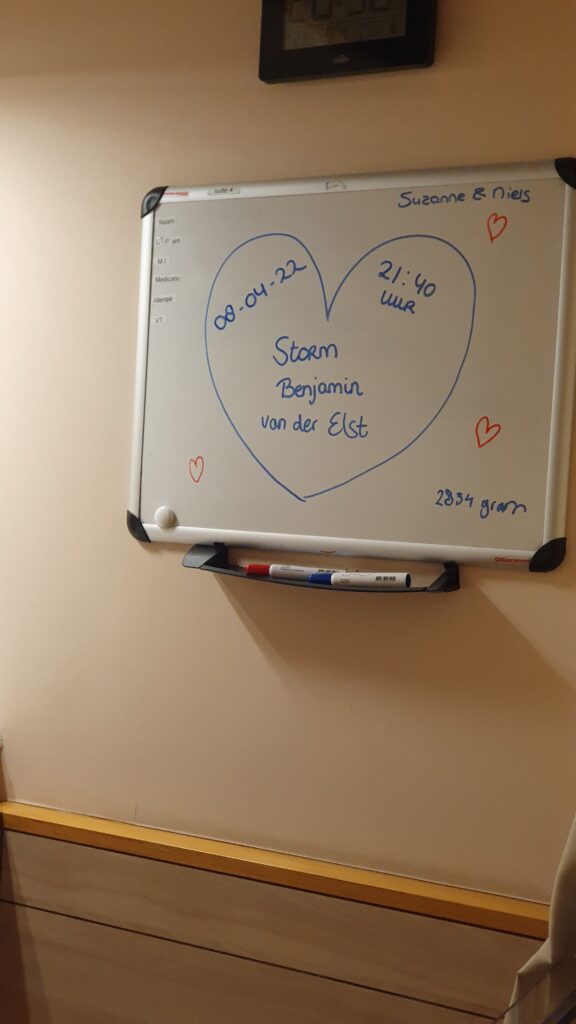 suite 4
Suzanne & Niels
Naam
Medicatie
Allergie
VT
08-04-22
21:40
UUR
Storm
Benjamin
van der Elst
2834 gram